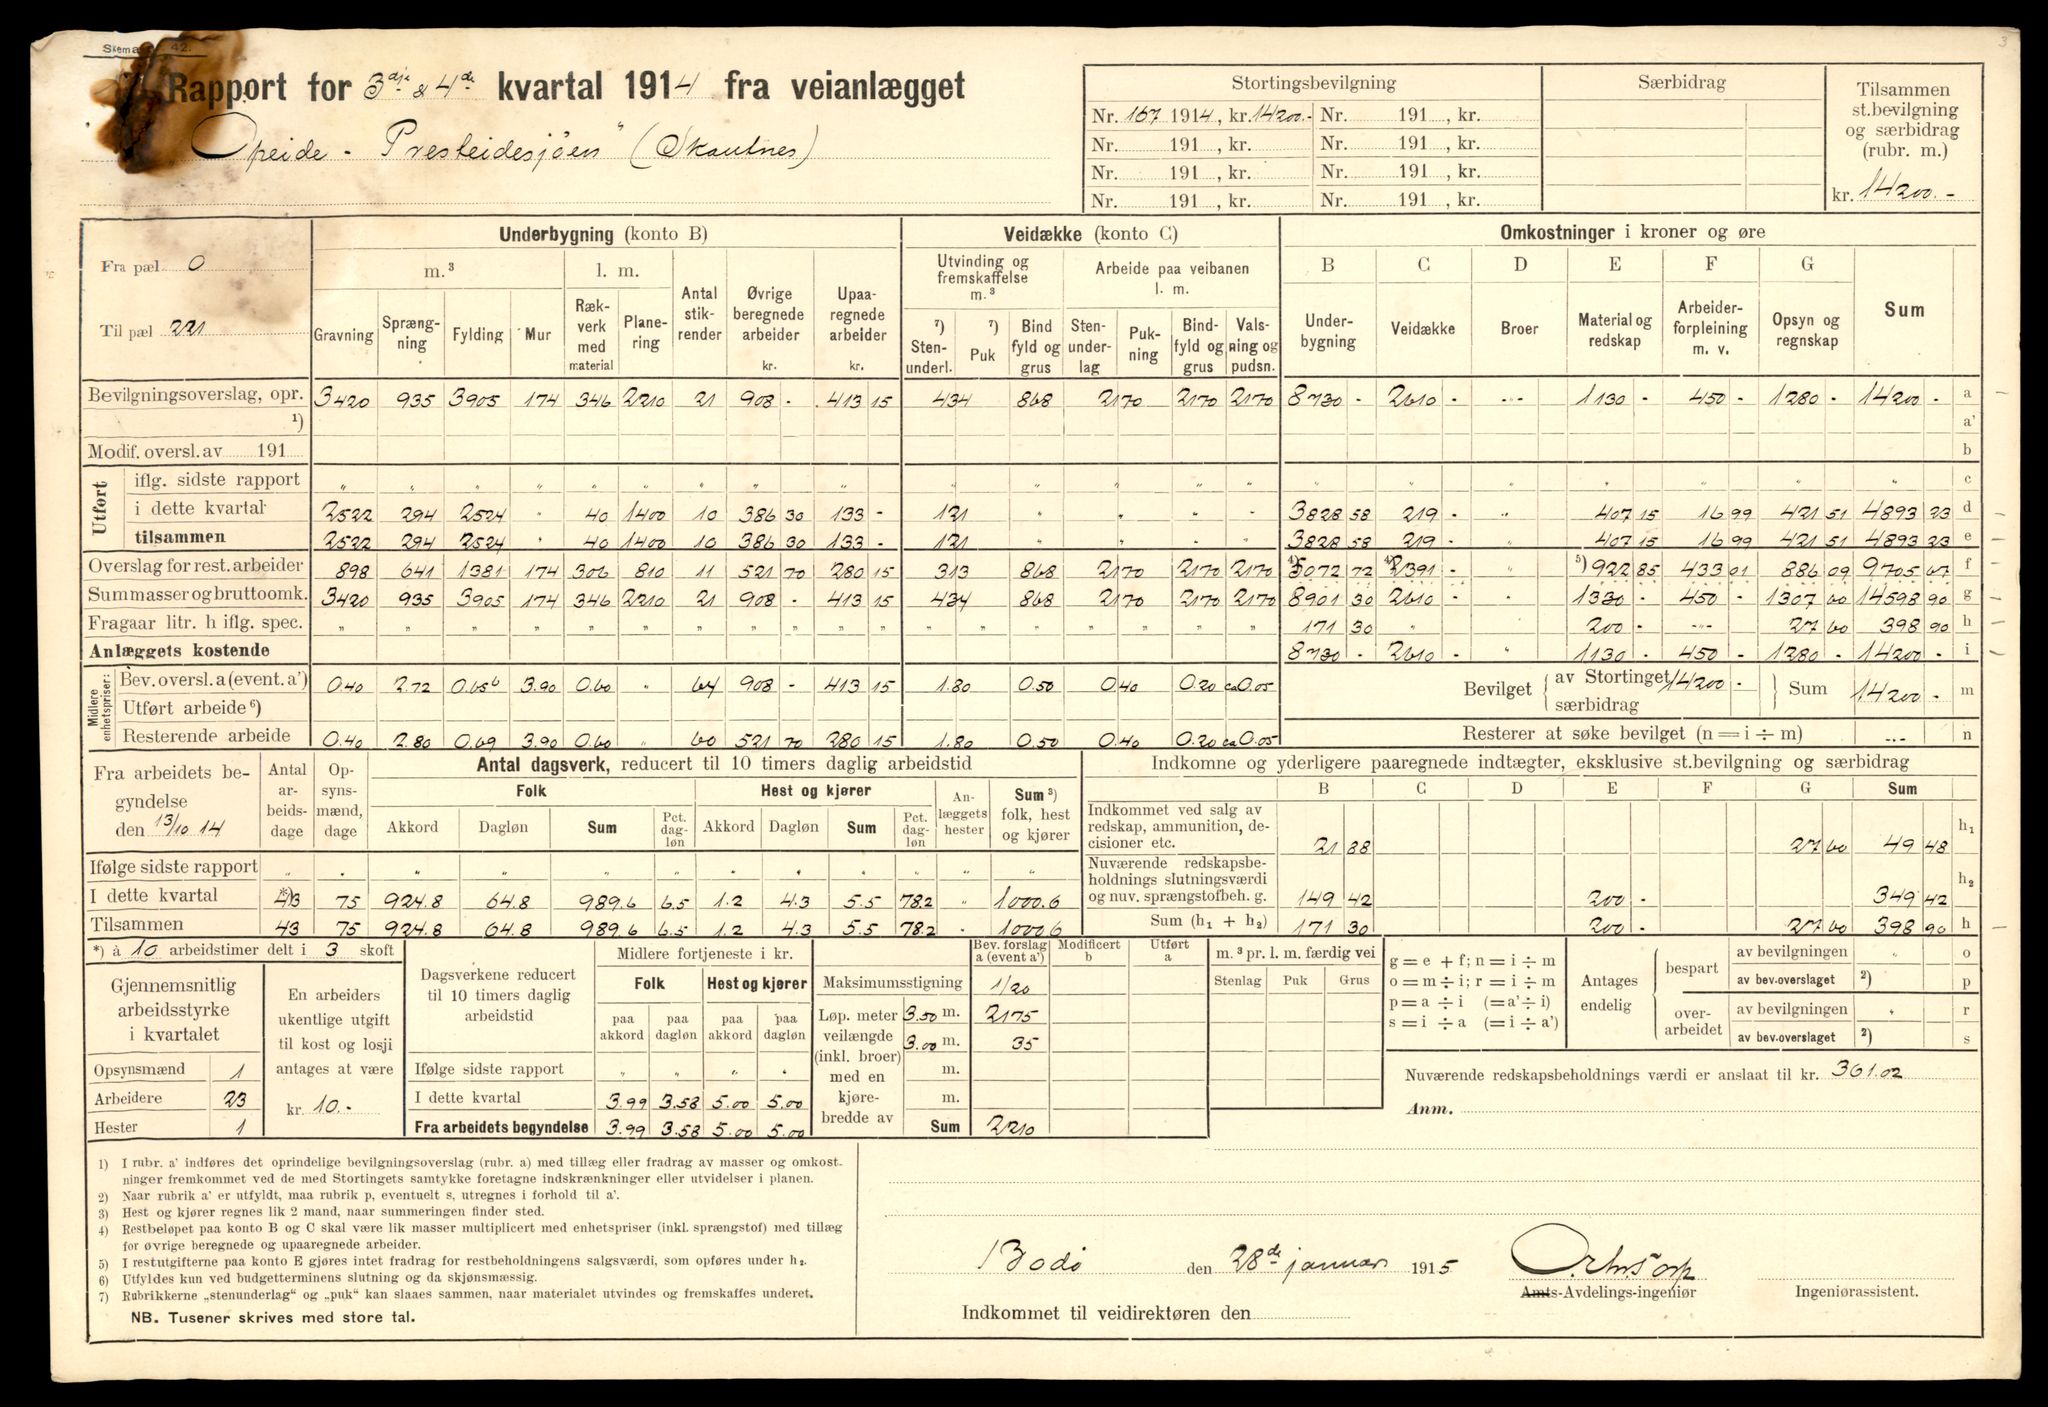 Skema 42.
Rapport for 3dje & 4de kvartal 1914 fra veianlægget
"Opeide - Presteidesjöen" (Skautnes)
Stortingsbevilgning Særbidrag Tilsammen st.bevilgning og særbidrag (rubr. m.)
Nr. 167 1914, kr. 14200.- Nr. 191 , kr.
Nr. 191 , kr. Nr. 191 , kr.
Nr. 191 , kr. Nr. 191 , kr.
Nr. 191 , kr. Nr. 191 , kr.
kr. 14200.-
Fra pæl 0
Til pæl 221
Underbygning (konto B) Veidække (konto C) Omkostninger i kroner og øre
m.³ l. m. Antal stikrender Øvrige beregnede arbeider kr. Upaaregnede arbeider kr.
Gravning Sprængning Fylding Mur Rækverk med material Planering
Utvinding og fremskaffelse m.³ Arbeide paa veibanen l. m.
⁷) Stenunderl. ⁷) Puk Bindfyld og grus Stenunderlag Pukning Bindfyld og grus Valsning og pudsn.
B C D E F G
Underbygning Veidække Broer Material og redskap Arbeiderforpleining m. v. Opsyn og regnskap Sum
Bevilgningsoverslag, opr. 3420 935 3905 174 346 2210 21 908 - 413 15 434 868 2170 2170 2170 8730 - 2610 - -"- 1130 - 450 - 1280 - 14200 - a
¹) a'
Modif. oversl. av 191 b
Utført
iflg. sidste rapport " " " " " " " " " " " " " " " " " " " " " c
i dette kvartal 2522 294 2524 " 40 1400 10 386 30 133 - 121 " " " " 3828 58 219 - " 407 15 16 99 421 51 4893 23 d
tilsammen 2522 294 2524 " 40 1400 10 386 30 133 - 121 " " " " 3828 58 219 - " 407 15 16 99 421 51 4893 23 e
Overslag for rest. arbeider 898 641 1381 174 306 810 11 521 70 280 15 313 868 2170 2170 2170 ⁴) 5072 72 ⁴) 2391 - " ⁵) 922 85 433 01 886 09 9705 67 f
Summasser og bruttoomk. 3420 935 3905 174 346 2210 21 908 - 413 15 434 868 2170 2170 2170 8901 30 2610 - 1330 - 450 - 1307 60 14598 90 g
Fragaar litr. h iflg. spec. " " " " " " " " " " " " " " " 171 30 " 200 - -"- 27 60 398 90 h
Anlæggets kostende 8730 - 2610 - " 1130 - 450 - 1280 - 14200 - i
Midlere enhetspriser:
Bev. oversl. a (event. a') 0.40 2.72 0.656 3.90 0.60 " 64 908 - 413 15 1.80 0.50 0.40 0.20 ca 0.05
Utført arbeide ⁶)
Resterende arbeide 0.40 2.80 0.69 3.90 0.60 " 60 521 70 280 15 1.80 0.50 0.40 0.20 ca 0.05
Bevilget av Stortinget 14200 - særbidrag Sum 14200 - m
Resterer at søke bevilget (n = i ÷ m) -"- n
Fra arbeidets begyndelse den 13/10 14
Antal arbeidsdage Opsynsmænd, dage
Antal dagsverk, reducert til 10 timers daglig arbeidstid
Folk Hest og kjører Anlæggets hester Sum ³) folk, hest og kjører
Akkord Dagløn Sum Pct. dagløn Akkord Dagløn Sum Pct. dagløn
Ifølge sidste rapport " " " " " " " " " " " "
I dette kvartal *) 43 75 924.8 64.8 989.6 6.5 1.2 4.3 5.5 78.2 " 1000.6
Tilsammen 43 75 924.8 64.8 989.6 6.5 1.2 4.3 5.5 78.2 - 1000.6
Indkomne og yderligere paaregnede indtægter, eksklusive st.bevilgning og særbidrag
B C D E G Sum
Indkommet ved salg av redskap, ammunition, decisioner etc. 21 88 27 60 49 48 h₁
Nuværende redskapsbeholdnings slutningsværdi og nuv. sprængstofbeh. g. 149 42 200 - 349 42 h₂
Sum (h₁ + h₂) 171 30 200 - 27 60 398 90 h
*) à 10 arbeidstimer delt i 3 skoft
Gjennemsnitlig arbeidsstyrke i kvartalet
Opsynsmænd 1
Arbeidere 23
Hester 1
En arbeiders ukentlige utgift til kost og losji antages at være kr. 10.-
Dagsverkene reducert til 10 timers daglig arbeidstid
Midlere fortjeneste i kr.
Folk Hest og kjører
paa akkord paa dagløn paa akkord paa dagløn
Ifølge sidste rapport " " " "
I dette kvartal 3.99 3.58 5.00 5.00
Fra arbeidets begyndelse 3.99 3.58 5.00 5.00
Bev. forslag a (event a') Modificert b Utført a
Maksimumsstigning 1/20
Løp. meter veilængde (inkl. broer) med en kjørebredde av
3.50 m. 2175
3.00 m. 35
m.
m.
Sum 2210
m.³ pr. l. m. færdig vei
Stenlag Puk Grus
g = e + f; n = i ÷ m
o = m ÷ i; r = i ÷ m
p = a ÷ i (= a' ÷ i)
s = i ÷ a (= i ÷ a')
Antages endelig
bespart av bevilgningen " o
av bev.overslaget ²) p
overarbeidet av bevilgningen " r
av bev.overslaget ²) s
Nuværende redskapsbeholdnings værdi er anslaat til kr. 361.02
Anm.
1) I rubr. a' indføres det oprindelige bevilgningsoverslag (rubr. a) med tillæg eller fradrag av masser og omkostninger
fremkommet ved de med Stortingets samtykke foretagne indskrænkninger eller utvidelser i planen.
2) Naar rubrik a' er utfyldt, maa rubrik p, eventuelt s, utregnes i forhold til a'.
3) Hest og kjører regnes lik 2 mand, naar summeringen finder sted.
4) Restbeløpet paa konto B og C skal være lik masser multiplicert med enhetspriser (inkl. sprængstof) med tillæg
for øvrige beregnede og upaaregnede arbeider.
5) I restutgifterne paa konto E gjøres intet fradrag for restbeholdningens salgsværdi, som opføres under h₂.
6) Utfyldes kun ved budgetterminens slutning og da skjønsmæssig.
7) Rubrikkerne „stenunderlag" og „puk" kan slaaes sammen, naar materialet utvindes og fremskaffes underet.
NB. Tusener skrives med store tal.
Bodö den 28de januar 1915
Amts-Avdelings-ingeniør Ingeniørassistent.
Indkommet til veidirektøren den